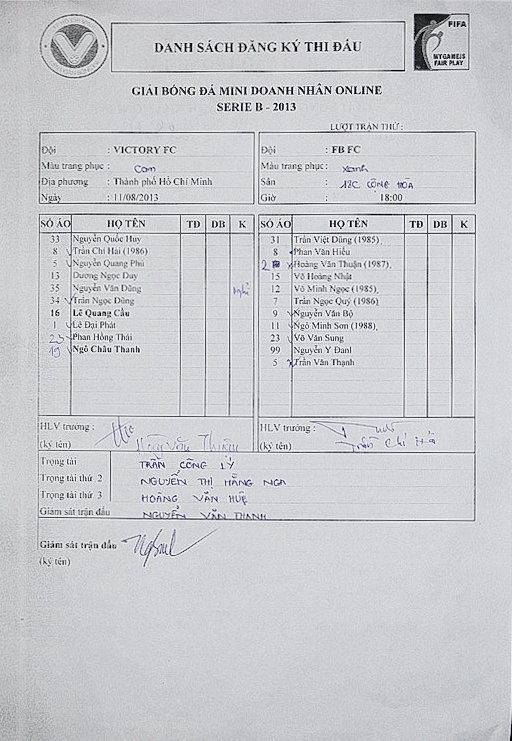 DANH SÁCH ĐĂNG KÝ THI ĐẤU
FIFA
MY GAME IS
FAIR PLAY
GIẢI BÓNG ĐÁ MINI DOANH NHÂN ONLINE
SERIE B - 2013
LƯỢT TRẬN THỨ :
Đội : VICTORY FC
Màu trang phục : Cam
Địa phương : Thành phố Hồ Chí Minh
Ngày : 11/08/2013
Đội : FB FC
Màu trang phục : xanh
Sân : 18C CỘNG HÒA
Giờ : 18:00
SỐ ÁO HỌ TÊN TĐ ĐB K
33 Nguyễn Quốc Huy
8 Trần Chí Hải (1986)
5 Nguyễn Quang Phú
13 Dương Ngọc Duy
35 Nguyễn Văn Dũng nghỉ
34 Trần Ngọc Dũng
16 Lê Quang Cầu
1 Lê Đại Phát
23 Phan Hồng Thái
19 Ngô Châu Thanh
SỐ ÁO HỌ TÊN TĐ ĐB K
31 Trần Việt Dũng (1985)
8 Phan Văn Hiếu
2 Hoàng Văn Thuận (1987)
15 Võ Hoàng Nhật
12 Võ Minh Ngọc (1985)
7 Trần Ngọc Quý (1986)
9 Nguyễn Văn Bộ
11 Ngô Minh Sơn (1988)
23 Võ Văn Sung
99 Nguyen Y Đanl
5 Trần Văn Thạnh
HLV trưởng :
(ký tên)
HLV trưởng :
(ký tên) Trần Chí Hải
Trọng tài TRẦN CÔNG LÝ
Trọng tài thứ 2 NGUYỄN THỊ HẰNG NGA
Trọng tài thứ 3 HOÀNG VĂN HUỆ
Giám sát trận đấu NGUYỄN VĂN THANH
Giám sát trận đấu
(ký tên)